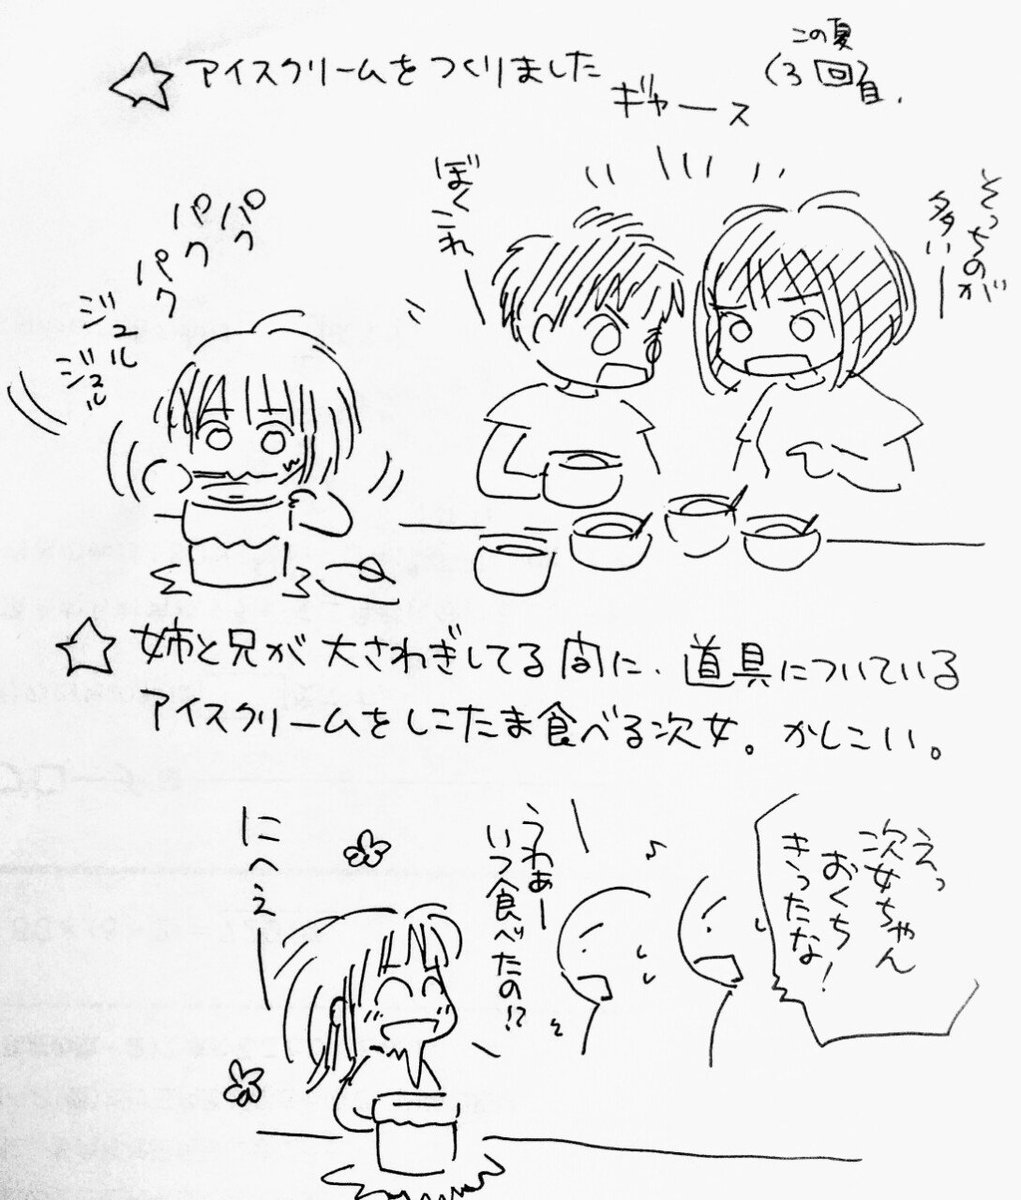 ☆アイスクリームをつくりました
この夏
(3回目)
ギャース
そっちのが
多いー
ぼくこれー
パク
パク
パク
ジュル
ジュル
☆姉と兄が大さわぎしてる間に、道具についている
アイスクリームをしこたま食べる次女。かしこい。
えっ
次女ちゃん
おくち
きったな!
うわぁー
いつ食べたの!?
にへえー